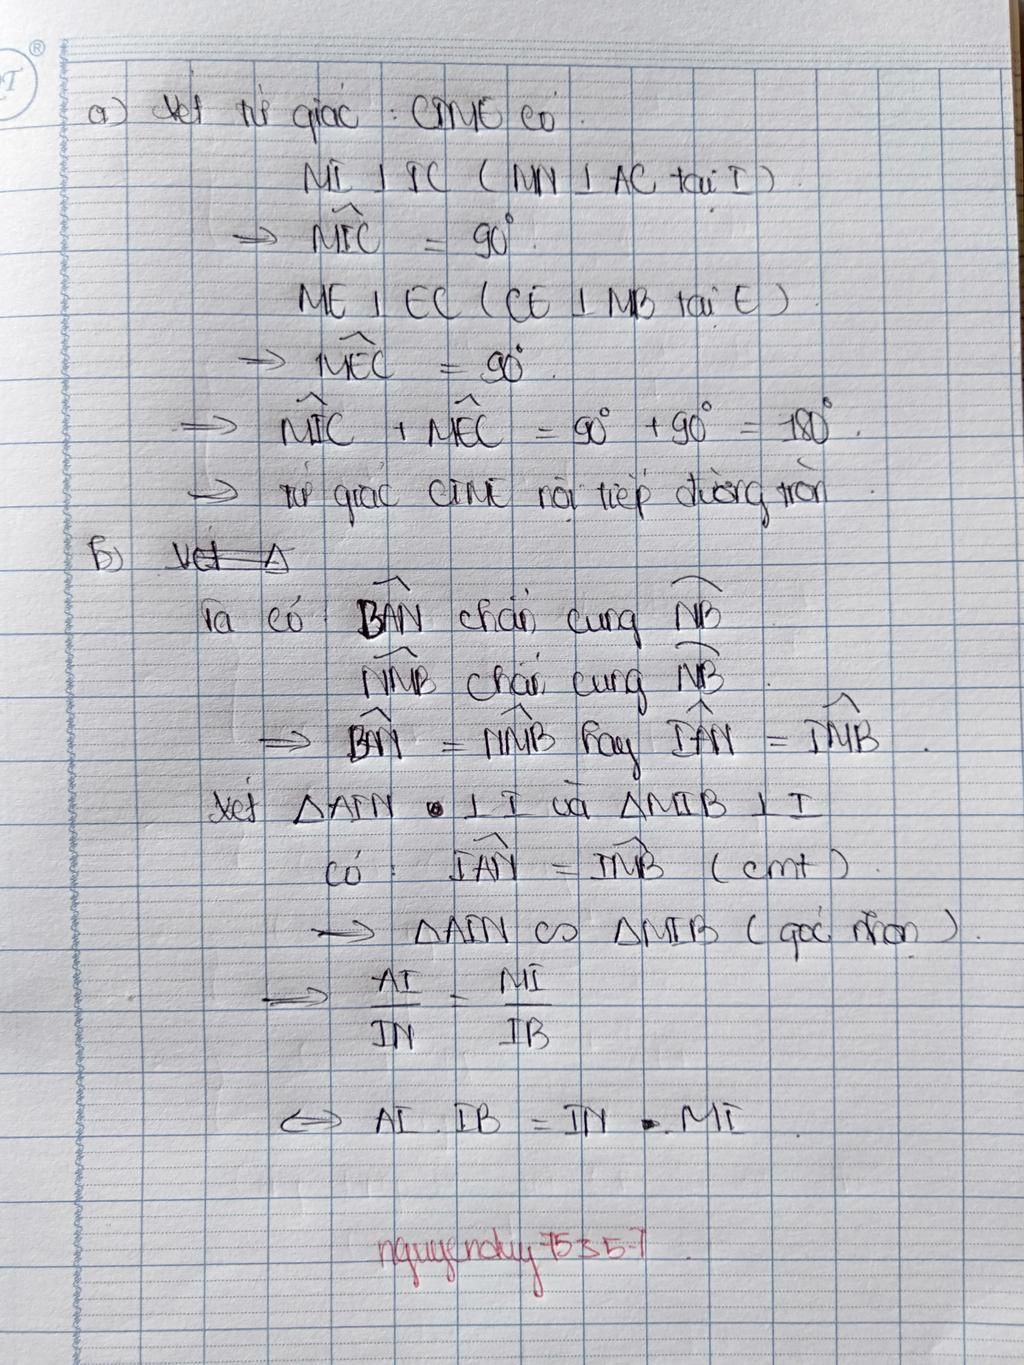 ®
a) Xét tứ giác : CIME có :
MI ⊥ IC ( MN ⊥ AC tại I ).
=> \widehat{MIC} = 90°.
ME ⊥ EC ( CE ⊥ MB tại E )
=> \widehat{MEC} = 90°.
=> \widehat{MIC} + \widehat{MEC} = 90° + 90° = 180°.
=> tứ giác CIME nội tiếp đường tròn.
b) Xét Δ
Ta có : \widehat{BAN} chắn cung \widehat{NB}
\widehat{NMB} chắn cung \widehat{NB}.
=> \widehat{BAN} = \widehat{NMB} hay \widehat{IAN} = \widehat{IMB}.
Xét ΔAIN ⊥ I và ΔMIB ⊥ I
có : \widehat{IAN} = \widehat{IMB} ( cmt ).
=> ΔAIN ∽ ΔMIB ( góc nhọn ).
=> AI/IN = MI/IB
<=> AI . IB = IN . MI
nguyenduy75357.